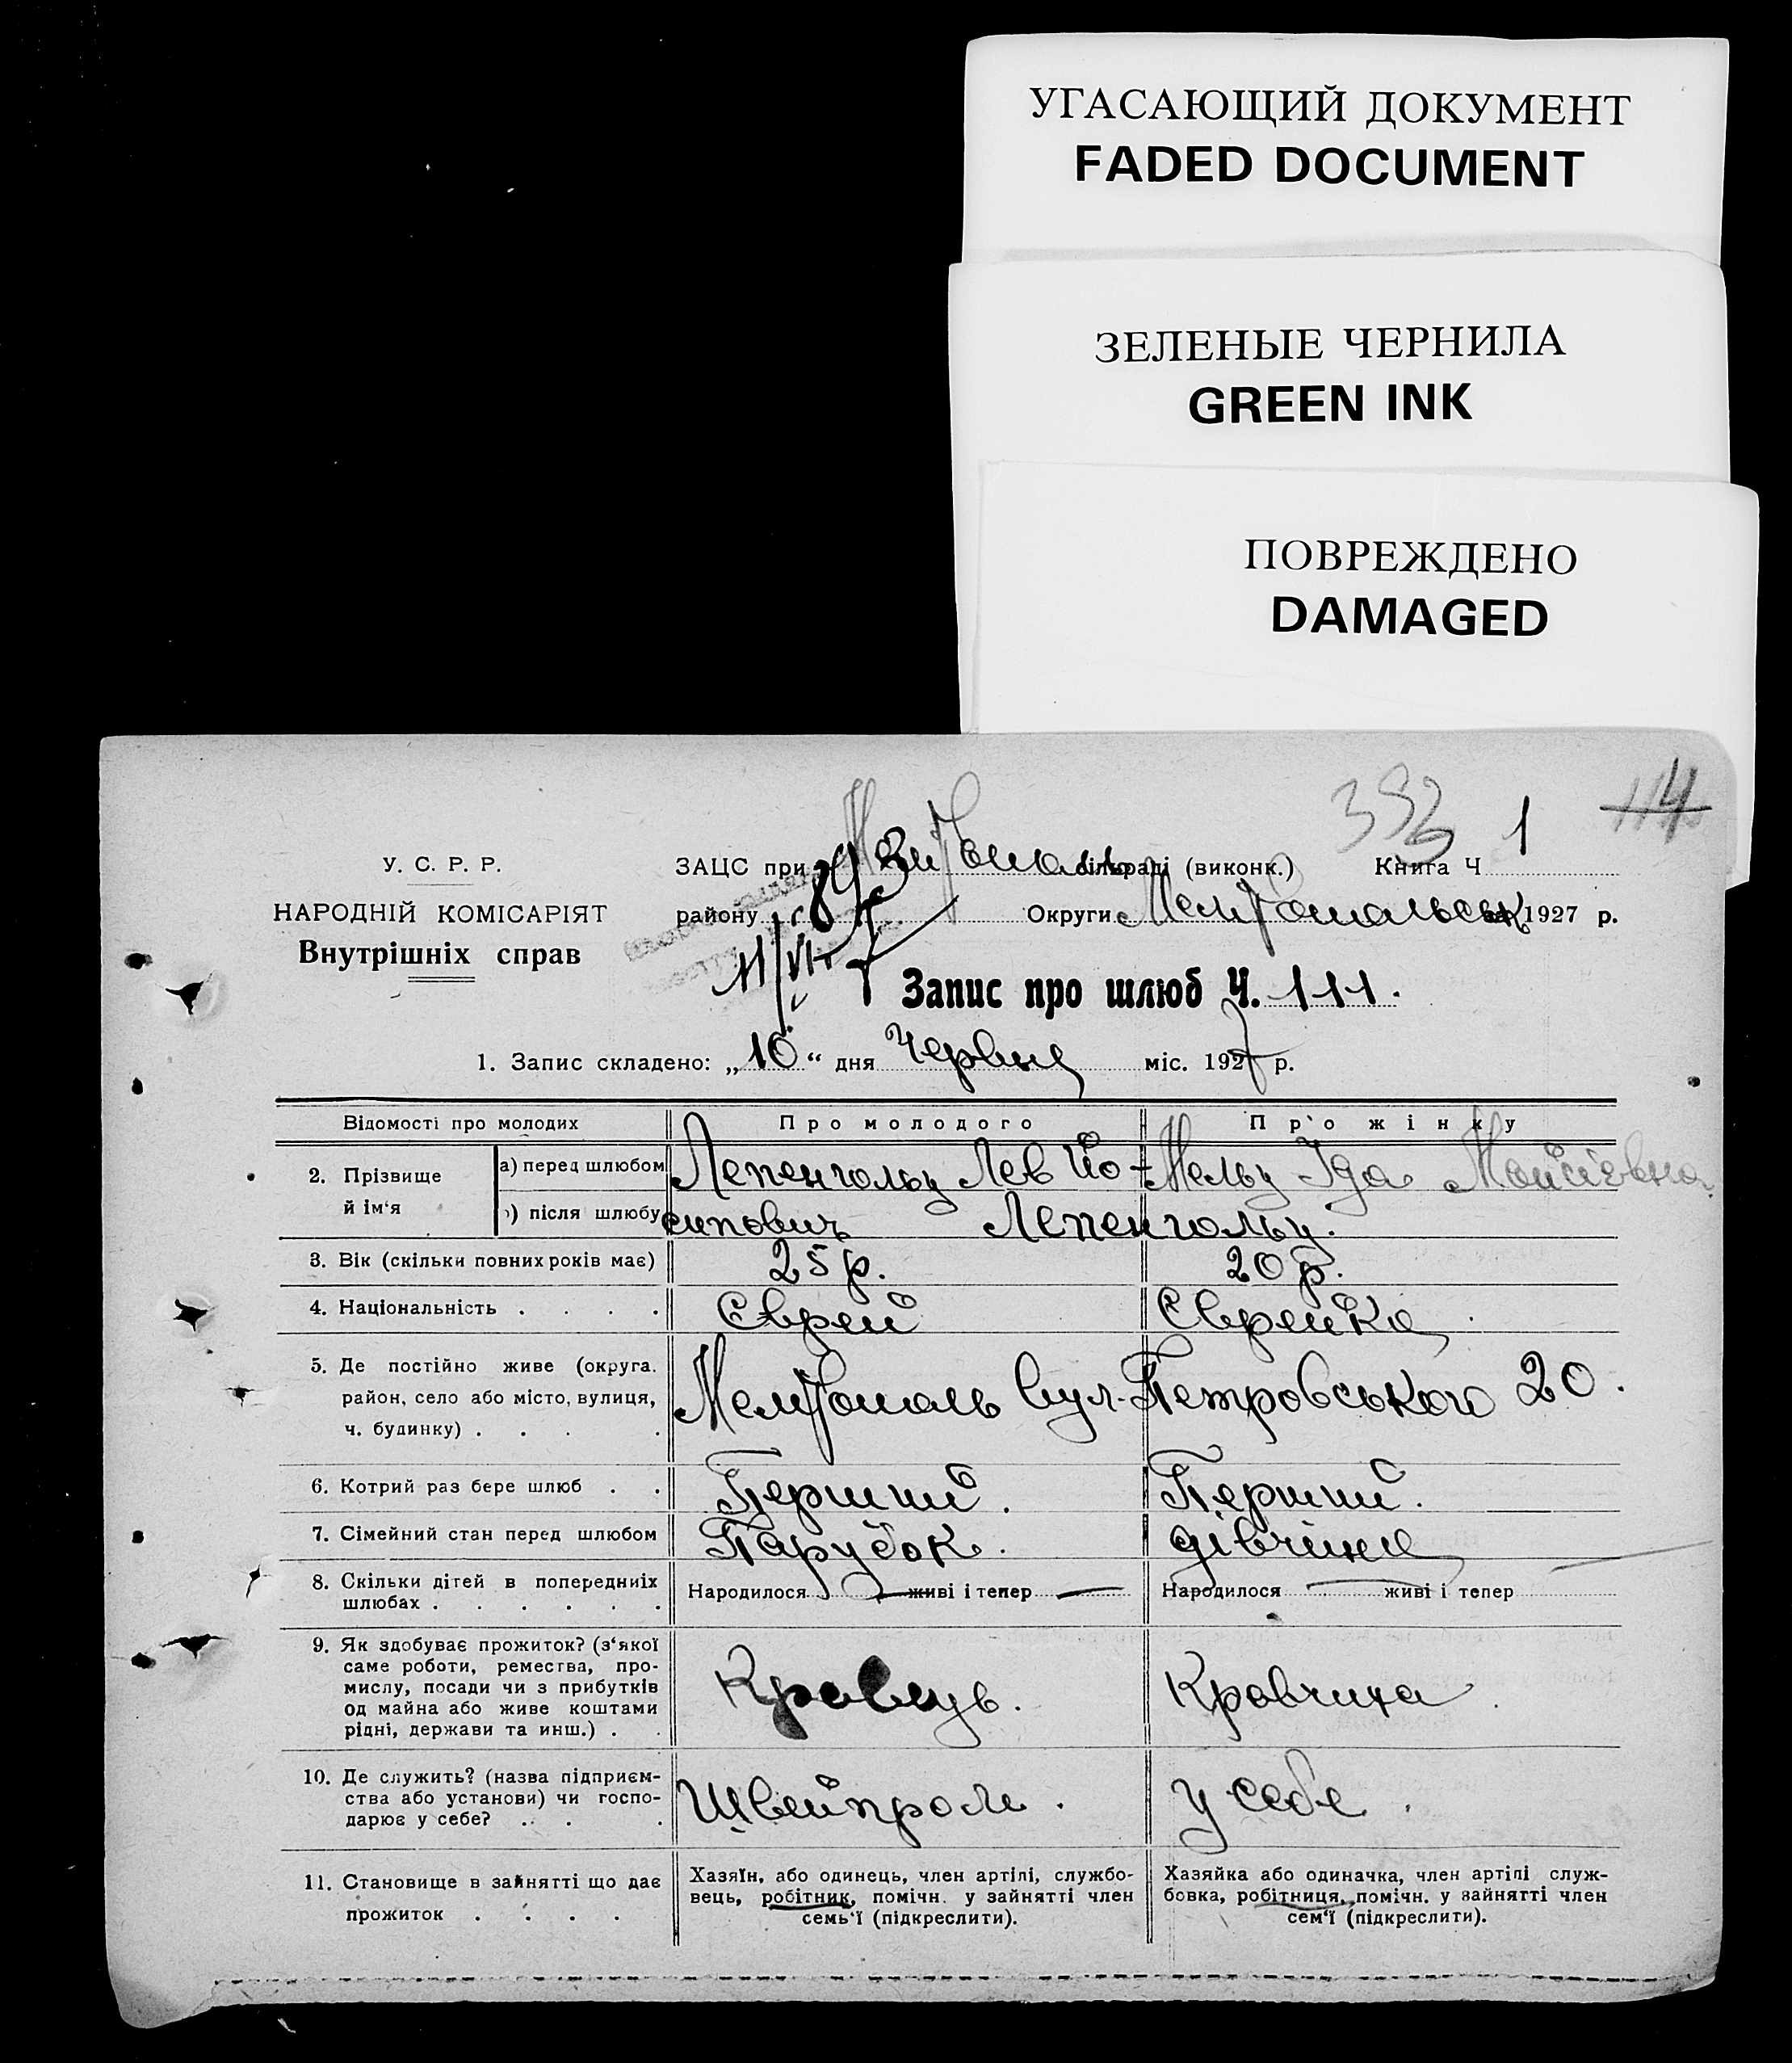 УГАСАЮЩИЙ ДОКУМЕНТ
FADED DOCUMENT
ЗЕЛЕНЫЕ ЧЕРНИЛА
GREEN INK
ПОВРЕЖДЕНО
DAMAGED
114
У. С. Р. Р.
НАРОДНІЙ КОМІСАРІЯТ
Внутрішніх справ
ЗАЦС при Мелітополь сільраді (виконк.) Книга Ч 1
району Округи Мелітопольськ за 1927 р.
893
11/VI
Запис про шлюб Ч. 111.
1. Запис складено: „10" дня Червня міс. 1927 р.
Відомості про молодих Про молодого Про жінку
2. Прізвище й ім'я
а) перед шлюбом Лепенгольц Лев Йо- Мельц Іда Мойсієвна
б) після шлюбу сипович Лепенгольц.
3. Вік (скільки повних років має) 25 р. 20 р.
4. Національність . . . . Єврей Єврейка
5. Де постійно живе (округа.
район, село або місто, вулиця,
ч. будинку) . . . . Мелітополь вул. Петровського 20.
6. Котрий раз бере шлюб . . Перший. Перший.
7. Сімейний стан перед шлюбом Парубок. дівчина
8. Скільки дітей в попередниіх
шлюбах . . . . . . Народилося — живі і тепер — Народилося — живі і тепер
9. Як здобуває прожиток? (з'якої
саме роботи, ремества, про-
мислу, посади чи з прибутків
од майна або живе коштами
рідні, держави та инш.) . . Кравець. Кравчиха
10. Де служить? (назва підприєм-
ства або установи) чи госпо-
дарює у себе? . . . Швейпром. у себе.
11. Становище в зайнятті що дає
прожиток . . . .
Хазяїн, або одинець, член артілі, службо-
вець, робітник, помічн. у зайнятті член
семь'ї (підкреслити).
Хазяйка або одиначка, член артілі служ-
бовка, робітниця, помічн. у зайнятті член
сем'ї (підкреслити).